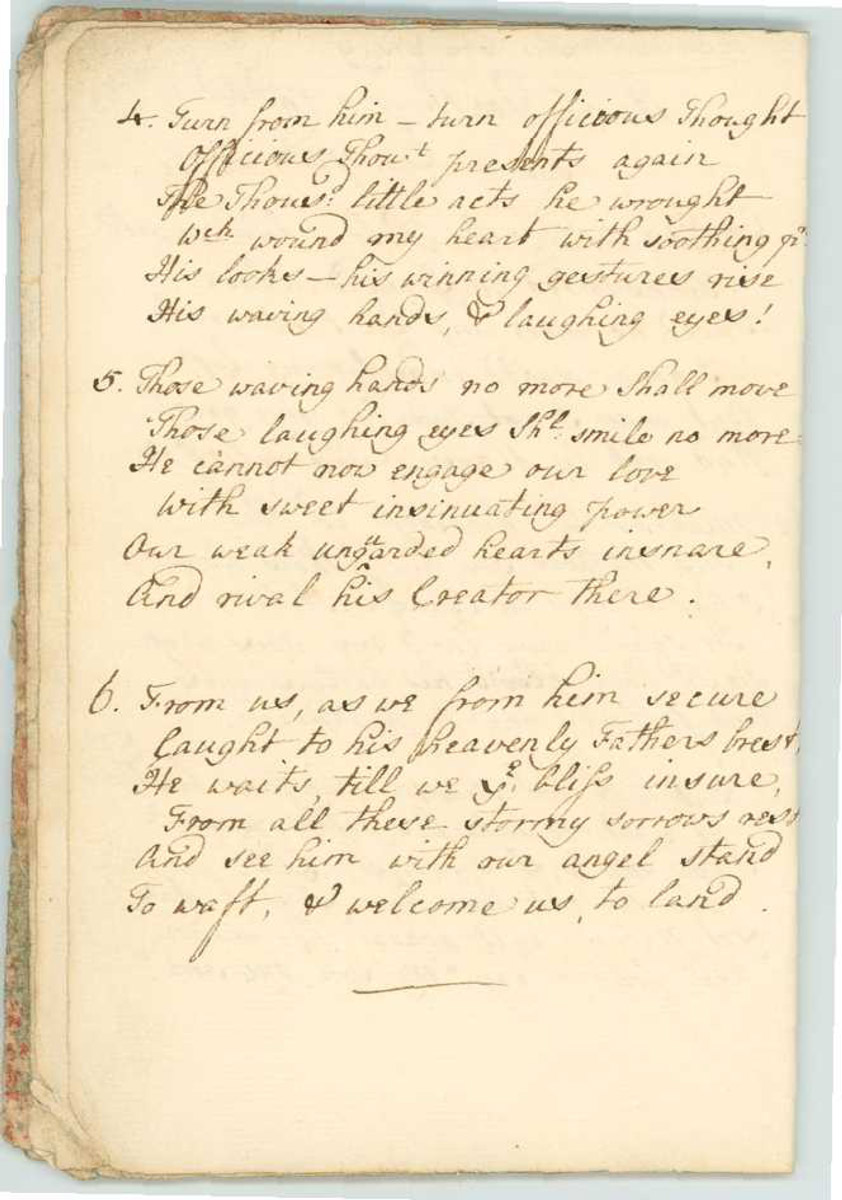 4. Turn from him – turn officious Thought
Officious Thou.t presents again
The Thous.d little acts he wrought
Wch. wound my heart with soothing
His looks – his winning gestures rise
His waving hands, & laughing eyes!
5. Those waving hands no more shall move
Those laughing eyes Shl. smile no more
He cannot now engage our love
With sweet insinuating power
Our weak ungarded hearts insnare,
And rival his Creator there.
6. From us, as we from him secure
Caught to his heavenly Fathers brest,
He waits, till we ye. bliss insure,
From all these stormy sorrows rest
And see him with our angel stand
To waft, & welcome us, to land.